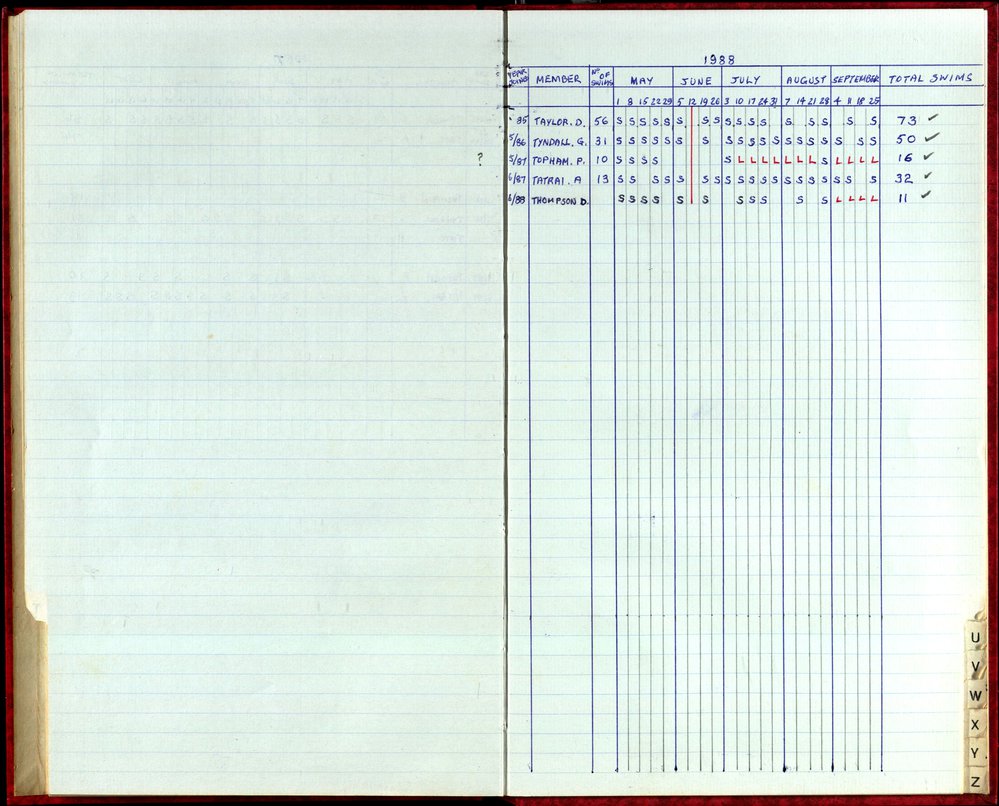 1988
YEAR JOINED MEMBER Nº OF SWIMS MAY JUNE JULY AUGUST SEPTEMBER TOTAL SWIMS
1 8 15 22 29 5 12 19 26 3 10 17 24 31 7 14 21 28 4 11 18 25
85 TAYLOR. D. 56 S S S S S S S S S S S S S S S S S 73 ✓
5/86 TYNDALL. G. 31 S S S S S S S S S S S S S S S S S S S 50 ✓
? 5/87 TOPHAM. P. 10 S S S S S L L L L L L L S L L L L 16 ✓
6/87 TATRAI. A 13 S S S S S S S S S S S S S S S S S S S 32 ✓
6/88 THOMPSON D. S S S S S S S S S S S L L L L 11 ✓
U
V
W
X
Y
Z